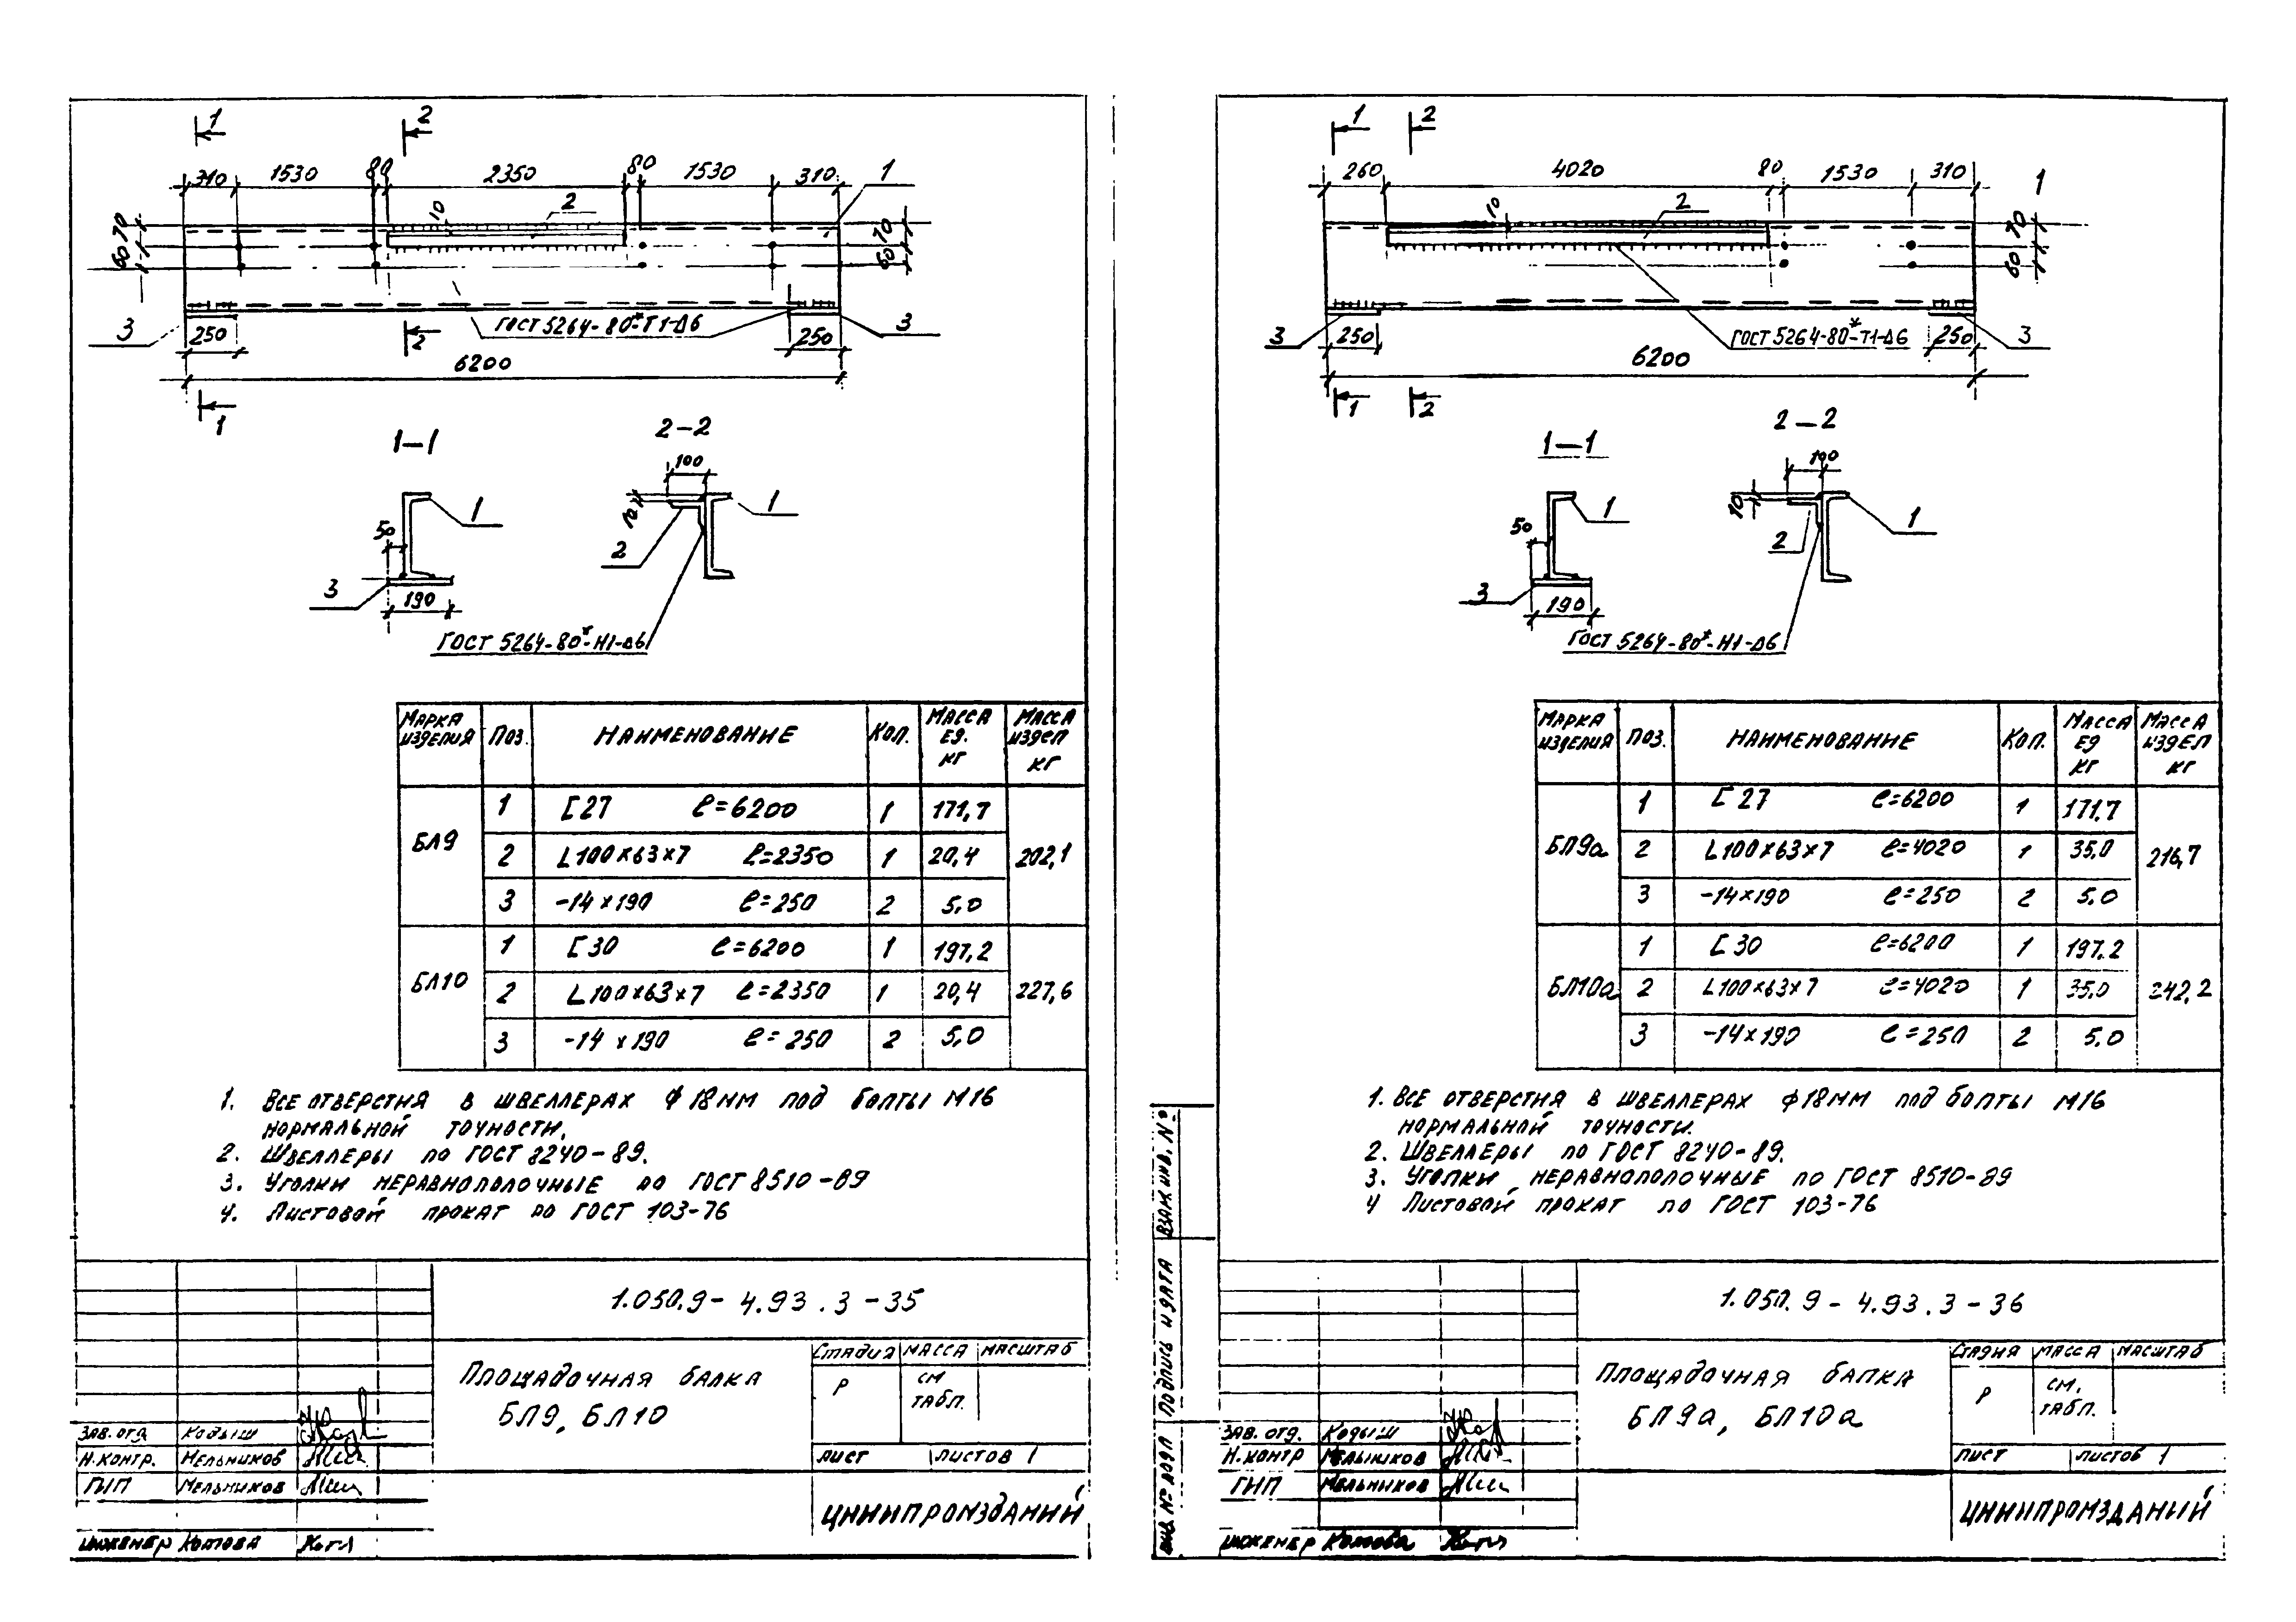 1
2
310 1530 80 2350 80 1530 310
1
10
2
70
60
70
60
3
250
ГОСТ 5264-80*-Т1-Δ6
2
250
3
6200
1
1-1
2-2
50
1
3
190
100
10
1
2
ГОСТ 5264-80*-Н1-Δ6
МАРКА ИЗДЕЛИЯ ПОЗ. НАИМЕНОВАНИЕ КОЛ. МАССА ЕД. КГ МАССА ИЗДЕЛ КГ
БЛ9 1 [27 ℓ=6200 1 171,7 202,1
2 L100×63×7 ℓ=2350 1 20,4
3 -14×190 ℓ=250 2 5,0
БЛ10 1 [30 ℓ=6200 1 197,2 227,6
2 L100×63×7 ℓ=2350 1 20,4
3 -14×190 ℓ=250 2 5,0
1. ВСЕ ОТВЕРСТИЯ В ШВЕЛЛЕРАХ ф 18ММ ПОД БОЛТЫ М16
НОРМАЛЬНОЙ ТОЧНОСТИ.
2. ШВЕЛЛЕРЫ ПО ГОСТ 8240-89.
3. УГОЛКИ НЕРАВНОПОЛОЧНЫЕ ПО ГОСТ 8510-89
4. ЛИСТОВОЙ ПРОКАТ ПО ГОСТ 103-76
1.050.9-4.93.3-35
ПЛОЩАДОЧНАЯ БАЛКА
БЛ9, БЛ10
СТАДИЯ МАССА МАСШТАБ
Р СМ ТАБЛ.
ЛИСТ ЛИСТОВ 1
ЗАВ. ОТД. КОДЫШ
Н.КОНТР. МЕЛЬНИКОВ
ГИП МЕЛЬНИКОВ
ИНЖЕНЕР КОТОВА
ЦНИИПРОМЗДАНИЙ
1
2
260 4020 80 1530 310
1
10
2
70
60
3
250
ГОСТ 5264-80*-Т1-Δ6
250
3
6200
1
2
1-1
2-2
50
1
3
190
100
10
1
2
ГОСТ 5264-80*-Н1-Δ6
МАРКА ИЗДЕЛИЯ ПОЗ. НАИМЕНОВАНИЕ КОЛ. МАССА ЕД КГ МАССА ИЗДЕЛ КГ
БЛ9а 1 [27 ℓ=6200 1 171,7 216,7
2 L100×63×7 ℓ=4020 1 35,0
3 -14×190 ℓ=250 2 5,0
БЛ10а 1 [30 ℓ=6200 1 197,2 242,2
2 L100×63×7 ℓ=4020 1 35,0
3 -14×190 ℓ=250 2 5,0
1. ВСЕ ОТВЕРСТИЯ В ШВЕЛЛЕРАХ ф 18ММ ПОД БОЛТЫ М16
НОРМАЛЬНОЙ ТОЧНОСТИ.
2. ШВЕЛЛЕРЫ ПО ГОСТ 8240-89.
3. УГОЛКИ НЕРАВНОПОЛОЧНЫЕ ПО ГОСТ 8510-89
4 ЛИСТОВОЙ ПРОКАТ ПО ГОСТ 103-76
ИНВ. № ПОДЛ ПОДПИСЬ И ДАТА ВЗАМ ИНВ. №
1.050.9-4.93.3-36
ПЛОЩАДОЧНАЯ БАЛКА
БЛ9а, БЛ10а
СТАДИЯ МАССА МАСШТАБ
Р СМ. ТАБЛ.
ЛИСТ ЛИСТОВ 1
ЗАВ. ОТД. КОДЫШ
Н.КОНТР МЕЛЬНИКОВ
ГИП МЕЛЬНИКОВ
ИНЖЕНЕР КОТОВА
ЦНИИПРОМЗДАНИЙ